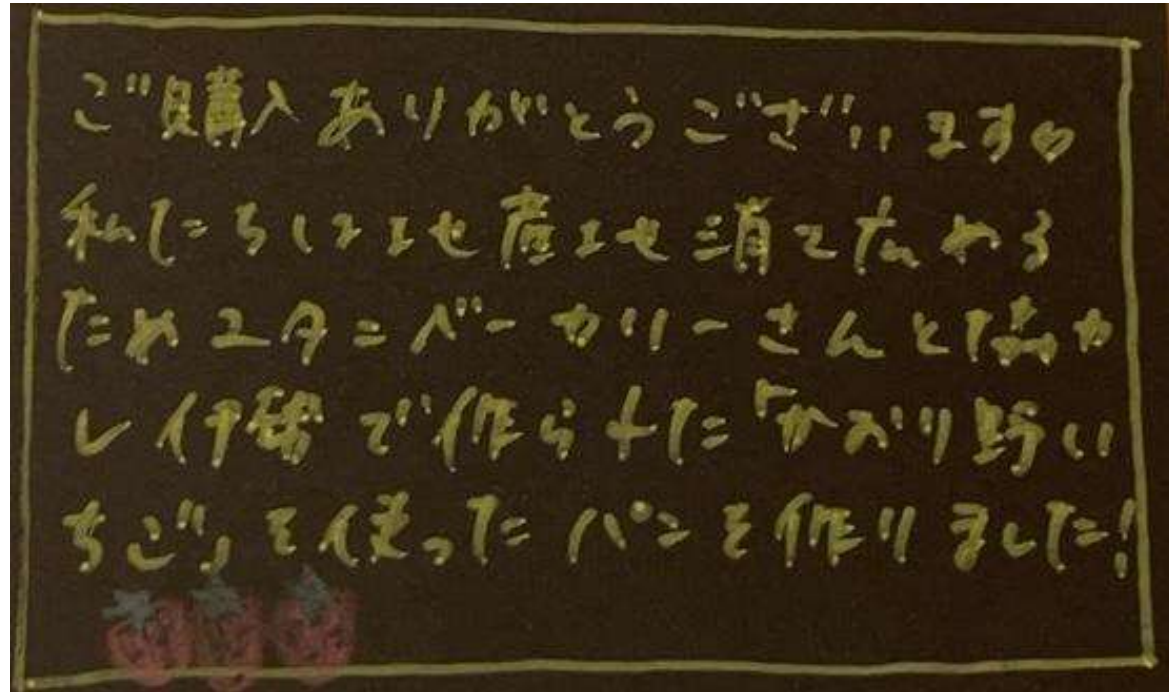 ご購入ありがとうございます♡
私たちは地産地消を広める
ためユタニベーカリーさんと協力
し伊勢で作られた「かおり野い
ちご」を使ったパンを作りました!